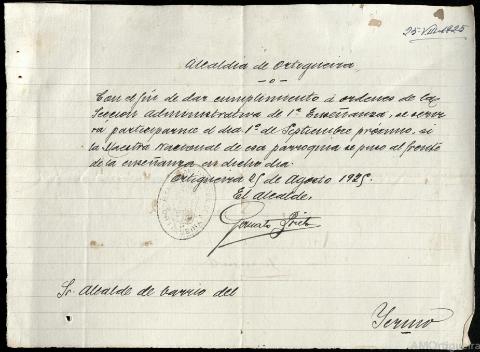 25-VIII-1925
Alcaldia de Ortigueira
Con el fin de dar cumplimiento á ordenes de la
Sección Administrativa de 1ª Enseñanza, se servi
rá participarme el dia 1º de Septiembre proximo, si
la Maestra Nacional de esa parroquia se puso al frente
de la enseñanza en dicho dia.
Ortigueira 25 de Agosto 1925.
El alcalde,
Sr. Alcalde de barrio del
Yermo
AMOrtigueira